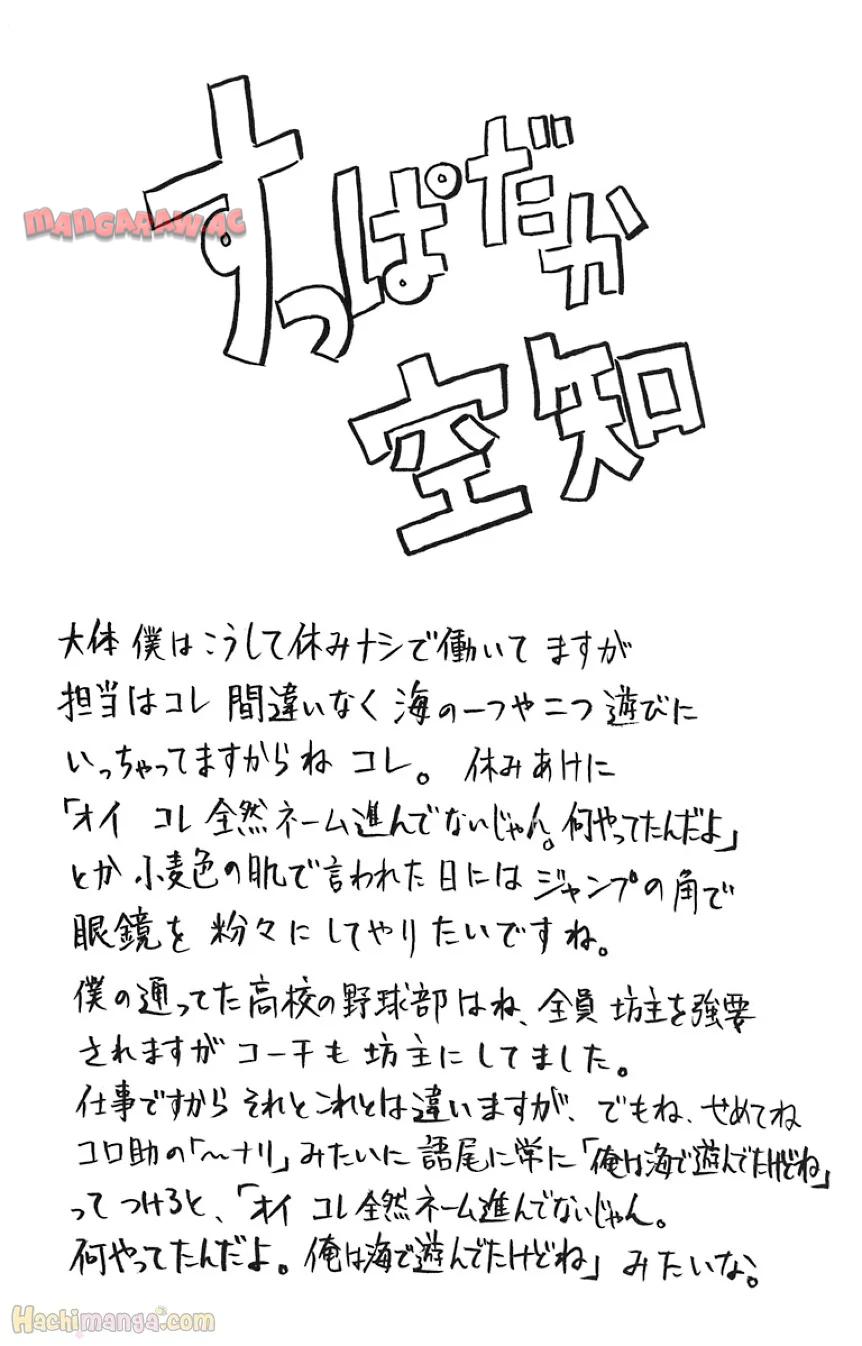 すっぱだか
MANGARAW.AC
空知
大体 僕はこうして休みナシで働いてますが
担当はコレ 間違いなく 海の一つや二つ 遊びに
いっちゃってますからね コレ。 休みあけに
「オイ コレ全然ネーム進んでないじゃん。何やってたんだよ」
とか 小麦色の肌で言われた日には ジャンプの角で
眼鏡を 粉々にしてやりたいですね。
僕の通ってた高校の野球部はね、全員 坊主を強要
されますが コーチも 坊主にしてました。
仕事ですから それとこれとは違いますが、でもね、せめてね
コロ助の「〜ナリ」みたいに 語尾に常に「俺は海で遊んでたけどね」
ってつけろと、「オイ コレ全然ネーム進んでないじゃん。
何やってたんだよ。俺は海で遊んでたけどね」みたいな。
Hachimanga.com